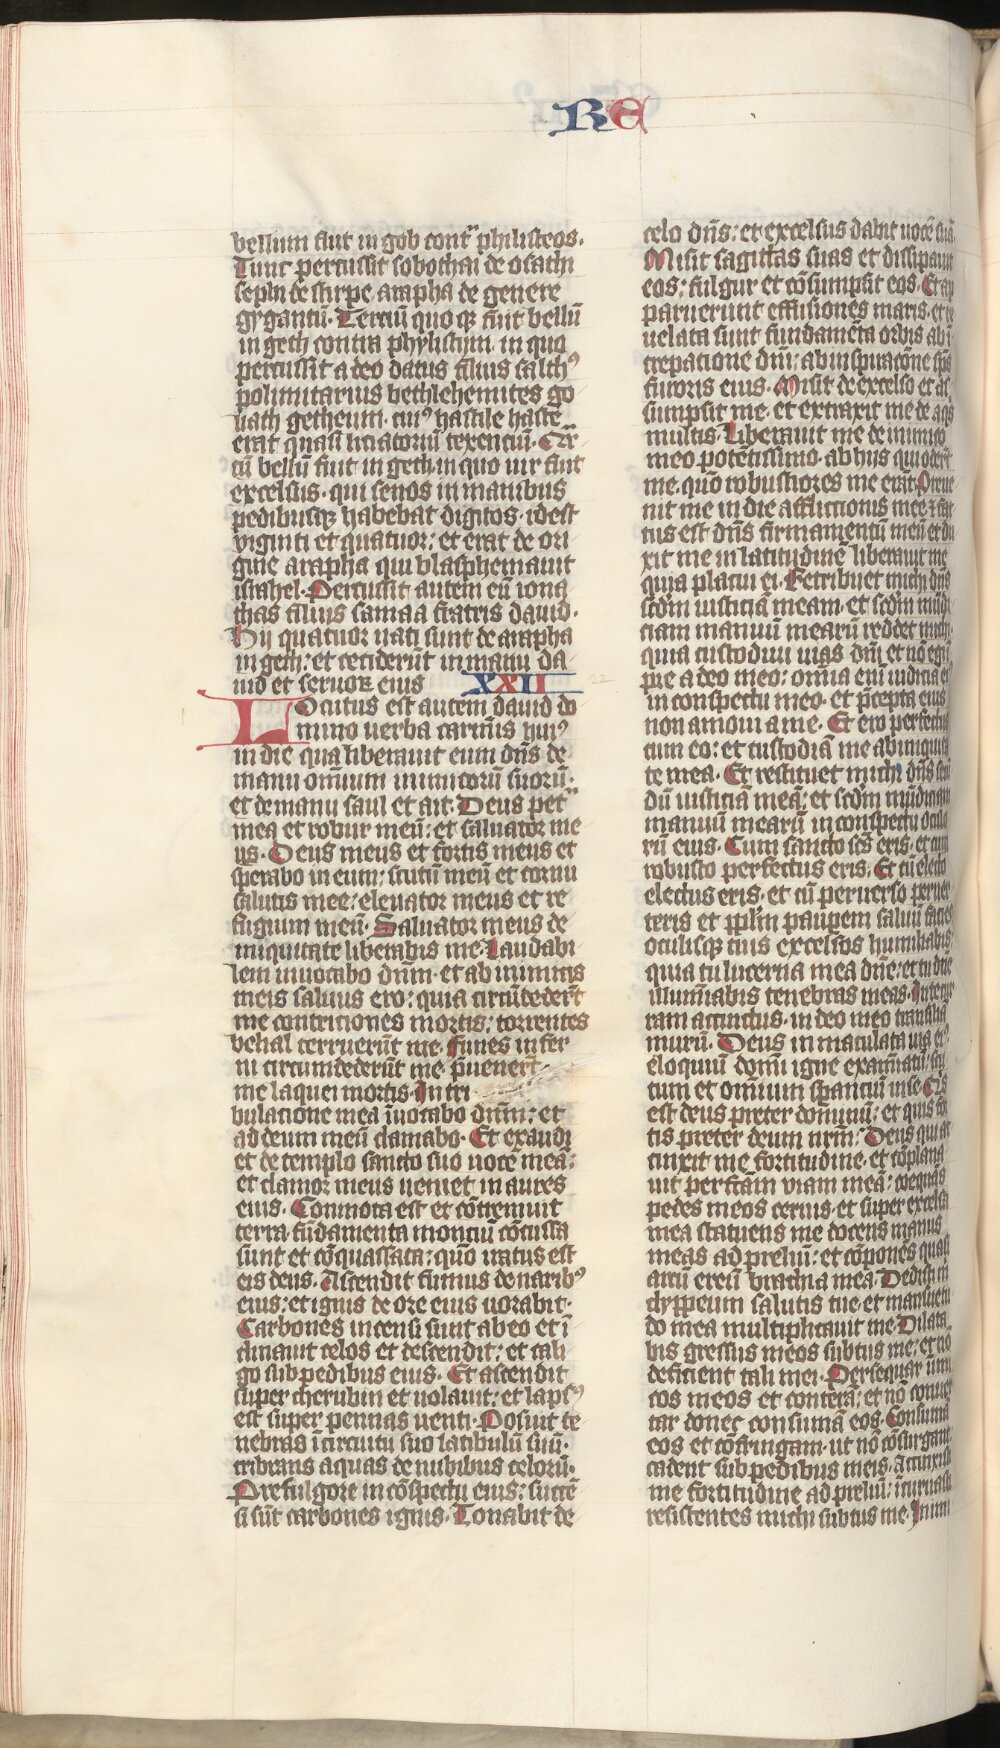 RE
bellum fuit in gob contᵃ philisteos.
Tunc percussit sobothai de osathi
seph de stirpe arapha de genere
gygantū. Terciū quoqȝ fuit bellū
in geth contra phylistim. in quo
percussit a deo datus filius saltħ⁹
polimitarius bethlehemites go
liath getheum. cui⁹ hastile haste
erat quasi liciatoriū texenciū. Qr̄
tū bellū fuit in geth. in quo uir fuit
excelsus. qui senos in manibus
pedibusqȝ habebat digitos. idest
viginti et quatuor: et erat de ori
gine arapha qui blasphemauit
israhel. Percussit autem eū iona
thas filius samaa fratris dauid.
Hij quatuor nati sunt de arapha
in geth: et ceciderūt in manu da
uid et seruoꝝ eius XXII
Locutus est autem dauid do
mino uerba carmīs hui⁹
in die qua liberauit eum dn̄s de
manu omnium inimicorū suorū.
et de manu saul et ait. Deus petᵃ
mea et robur meū: et saluator me
us. Deus meus et fortis meus et
sperabo in eum: scutū meū et cornu
salutis mee: eleuator meus et re
fugium meū. Saluator meus de
iniquitate liberabis me. Laudabi
lem inuocabo dn̄m. et ab inimicis
meis saluus ero: quia circūdeder̄t
me contriciones mortis: torrentes
belial terruerūt me. Funes infer
ni circumdederūt me. p̄uener̄t
me laquei mortis. In tri
bulacione mea īuocabo dn̄m: et
ad deum meū clamabo. Et exaudi
et de templo sancto suo uocē meā:
et clamor meus ueniet in aures
eius. Conmota est et cōtremuit
terra. fūdamenta monciū cōcussa
sunt et cōquassata: quō iratus est
eis deus. Ascendit fumus de narib⁹
eius: et ignis de ore eius uorabit.
Carbones incensi sunt ab eo et ī
clinauit celos et descendit: et cali
go sub pedibus eius. Et ascendit
super cherubin et uolauit: et laps⁹
est super pennas uenti. Posuit te
nebras ī circuitu suo latibulū suū.
cribrans aquas de nubibus celorū.
Pre fulgore in cōspectu eius: succē
si sūt carbones ignis. Tonabit de
celo dn̄s: et excelsus dabit uocē suā
Misit sagittas suas et dissipauit
eos: fulgur et cōsumpsit eos. Et ap
paruerunt effusiones maris. et re
uelata sunt fundamēta orbis ab ī
crepatione dn̄i: ab inspiracōne sp̄s
furoris eius. Misit de excelso et as
sumpsit me. et extraxit me de aqs
multis. Liberauit me de inimico
meo potētissimo. ab hijs qui oder̄t
me. quō robustiores me erāt. Preue
nit me in die afflictionis mee ⁊ fac
tus est dn̄s firmamentū meū et edu
xit me in latitudinē liberauit me
quia placui ei. Retribuet michi dn̄s
scd̄m iusticiā meam. et scd̄m mūdi
ciam manuū mearū reddet michi.
quia custodiui uias dn̄i et nō egi ī
pie a deo meo: omīa eni iudicia ei⁹
in conspectu meo. et p̄cepta eius
non amoui a me. Et ero perfectus
cum eo: et custodiā me ab iniquita
te mea. Et restituet michi dn̄s secū
dū iusticiā meā: et scd̄m mūdiciam
manuū mearū in conspectu oculo
rū eius. Cum sancto sc̄s eris. et cum
robusto perfectus eris. Et cū electo
electus eris. et cū peruerso peruer
teris et pp̄lm pauꝑem saluū facies
oculisqȝ tuis excelsos humiliabis:
quia tu lucerna mea dn̄e: et tu dn̄e
illumīabis tenebras meas. In te cur
ram accinctus. in deo meo transiliā
murū. Deus in maculata uia ei⁹
eloquiū domī igne examīatū: scu
tum et omnium sperantiū in se. Qis
est deus preter dominū: et quis for
tis preter deum nr̄m: Deus qui ac
cinxit me fortitudine. et cōplana
uit perfctām viam meā: coequās
pedes meos ceruis. et super excelsa
mea statuens me docens manus
meas ad preliū: et cōponēs quasi
arcū ereū brachia mea. Dedisti m̄
clyppeum salutis tue. et mansuetu
do mea multiplicauit me. Dilata
bis gressus meos subtus me: et nō
deficient tali mei. Persequar inimi
cos meos et conterā: et nō conuer
tar donec consumā eos. Consumā
eos et cōfringam. ut nō cōsurgant
cadent sub pedibus meis. Accinxisti
me fortitudine ad preliū: īcuruasti
resistentes michi subtus me. Inimi